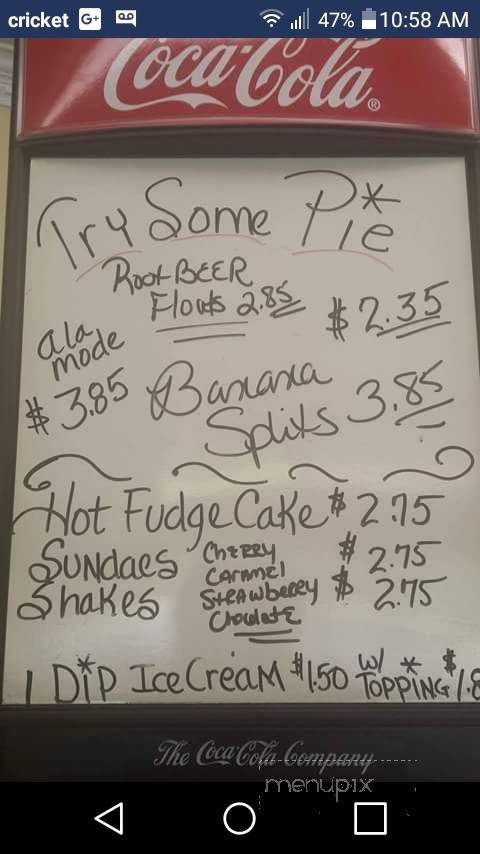 cricket G+ 47% 10:58 AM
Coca-Cola®
Try Some Pie*
Root BEER
Floats 2.85
$2.35
a la
mode
$3.85
Banana
Splits 3.85
Hot Fudge Cake $2.75
Sundaes $2.75
Shakes $2.75
Cherry
Caramel
Strawberry
Choclate
1 Dip Ice Cream $1.50 w/ * TOPPING $1.8
The Coca-Cola Company
menupix